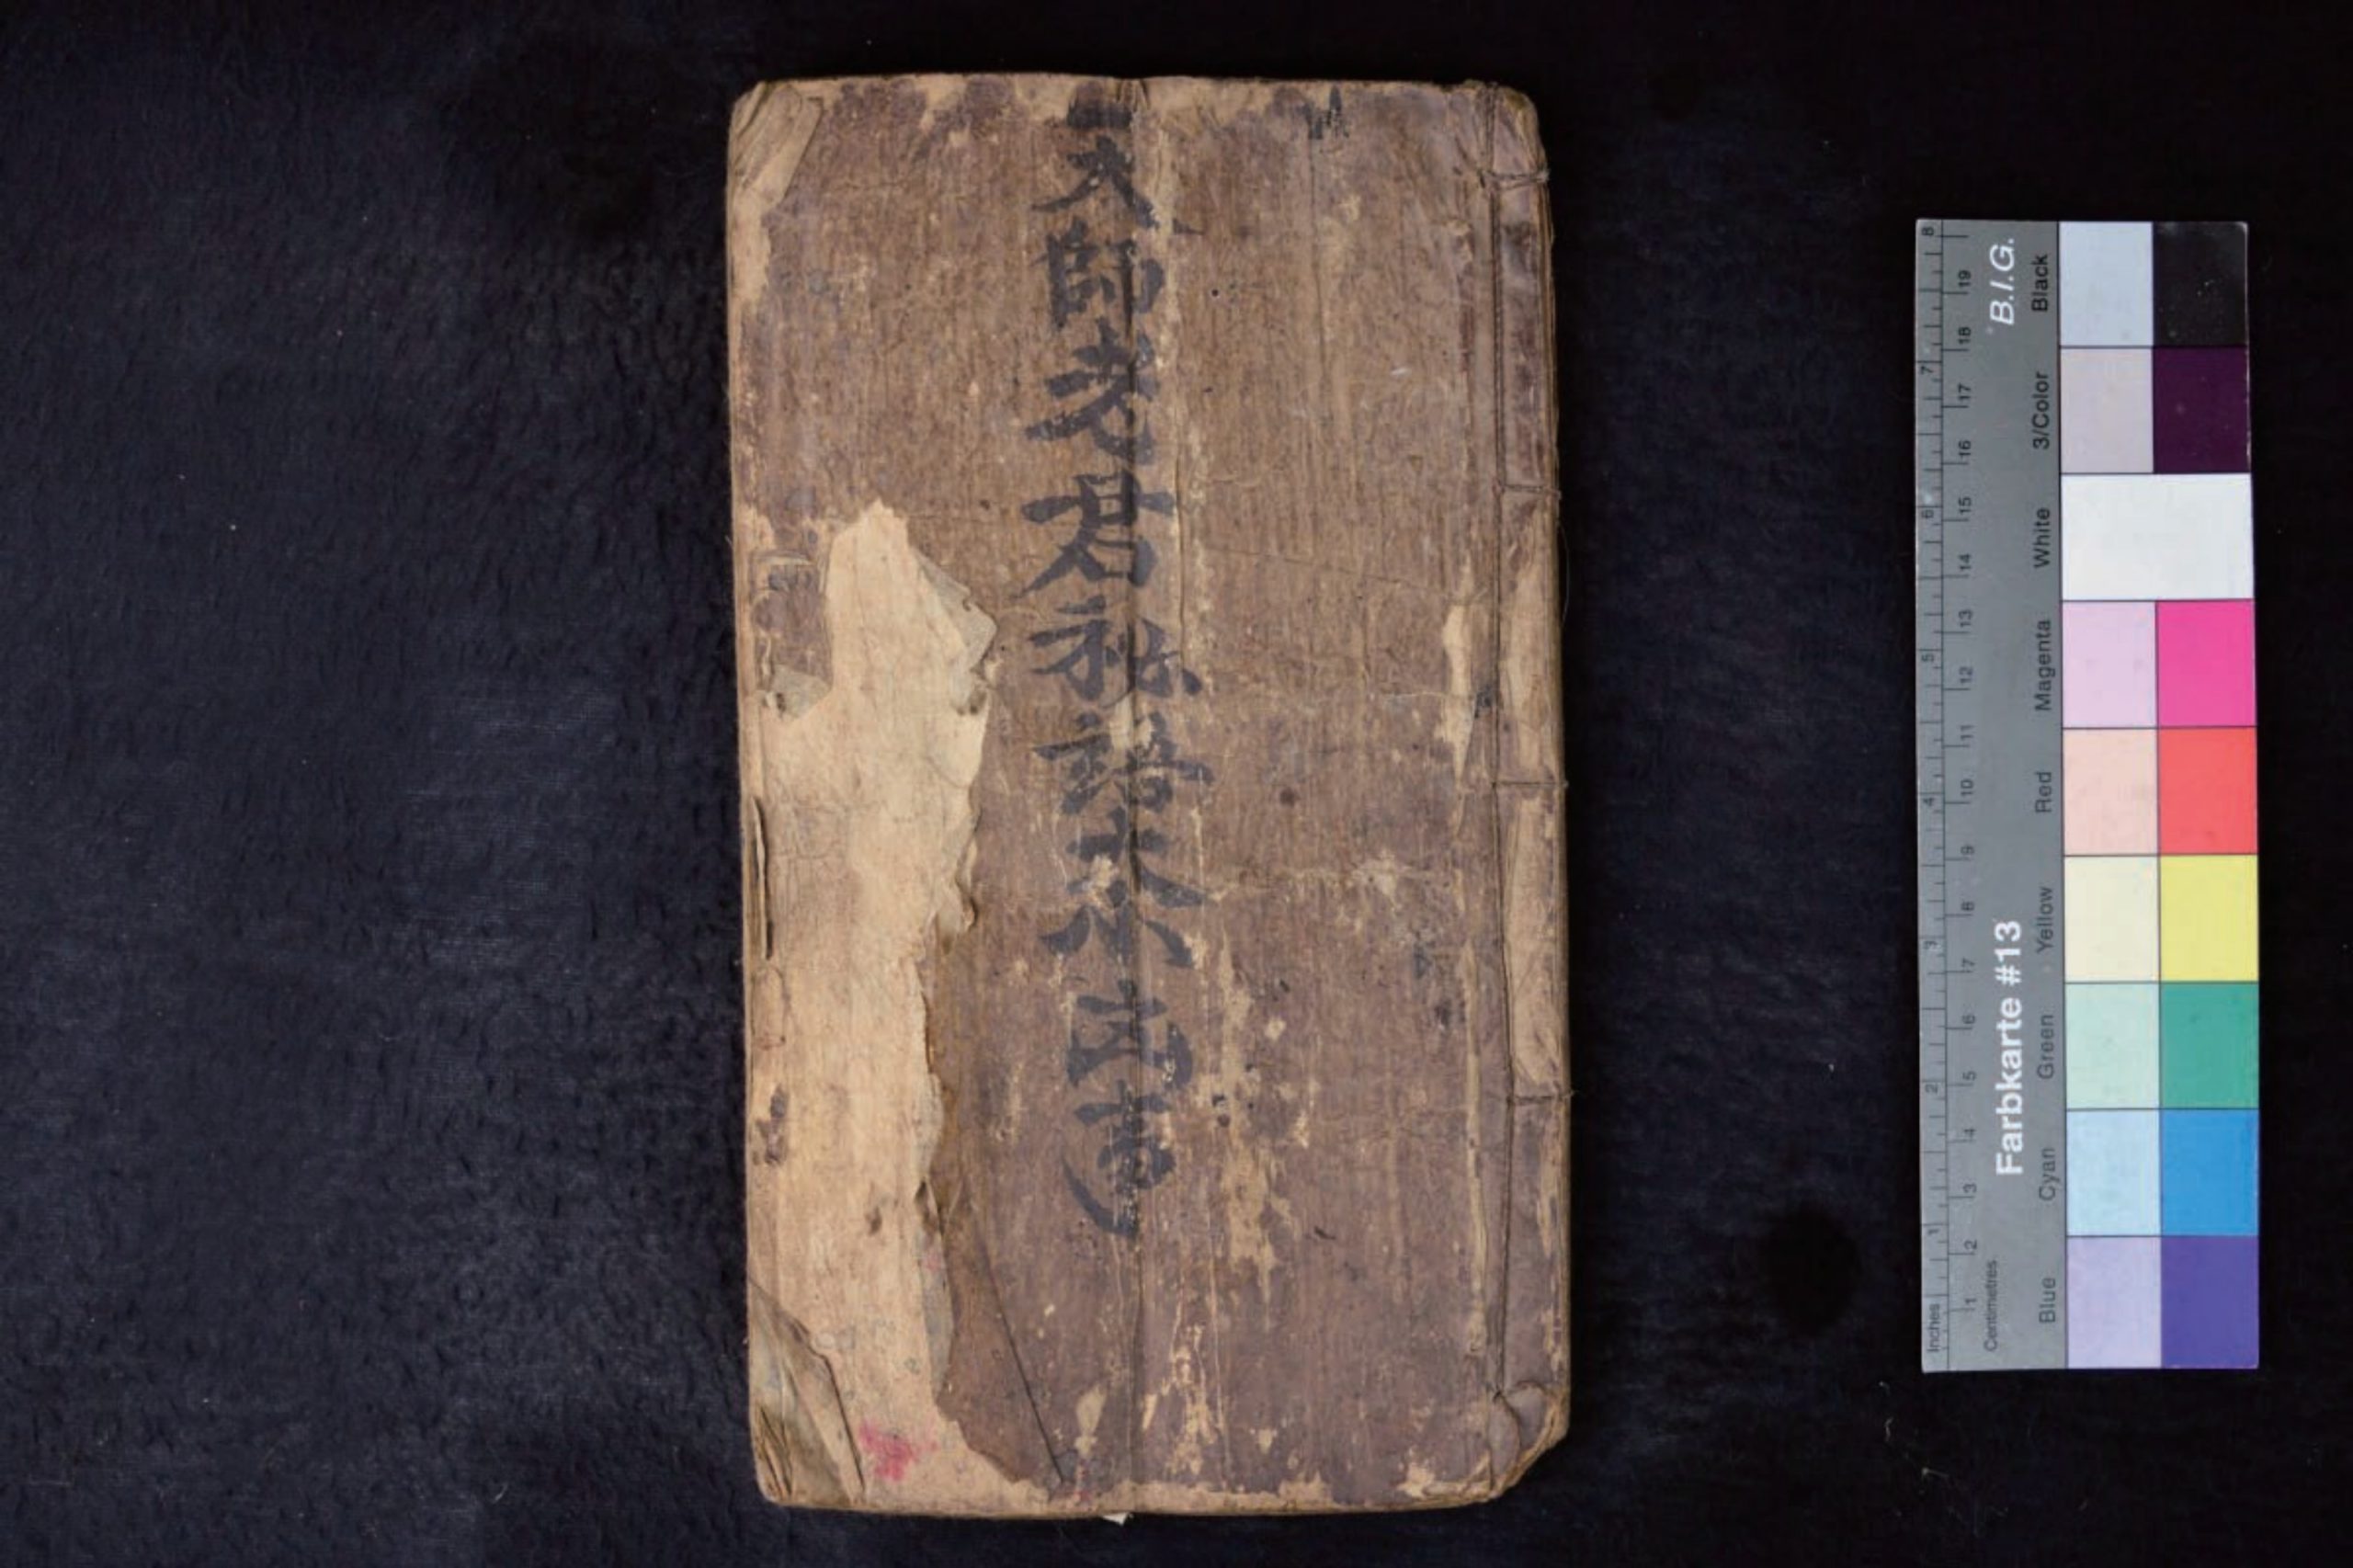 天師老君秘語
Inches 1 2 3 4 5 6 7 8
Centimetres 1 2 3 4 5 6 7 8 9 10 11 12 13 14 15 16 17 18 19
Farbkarte #13 B.I.G.
Blue Cyan Green Yellow Red Magenta White 3/Color Black